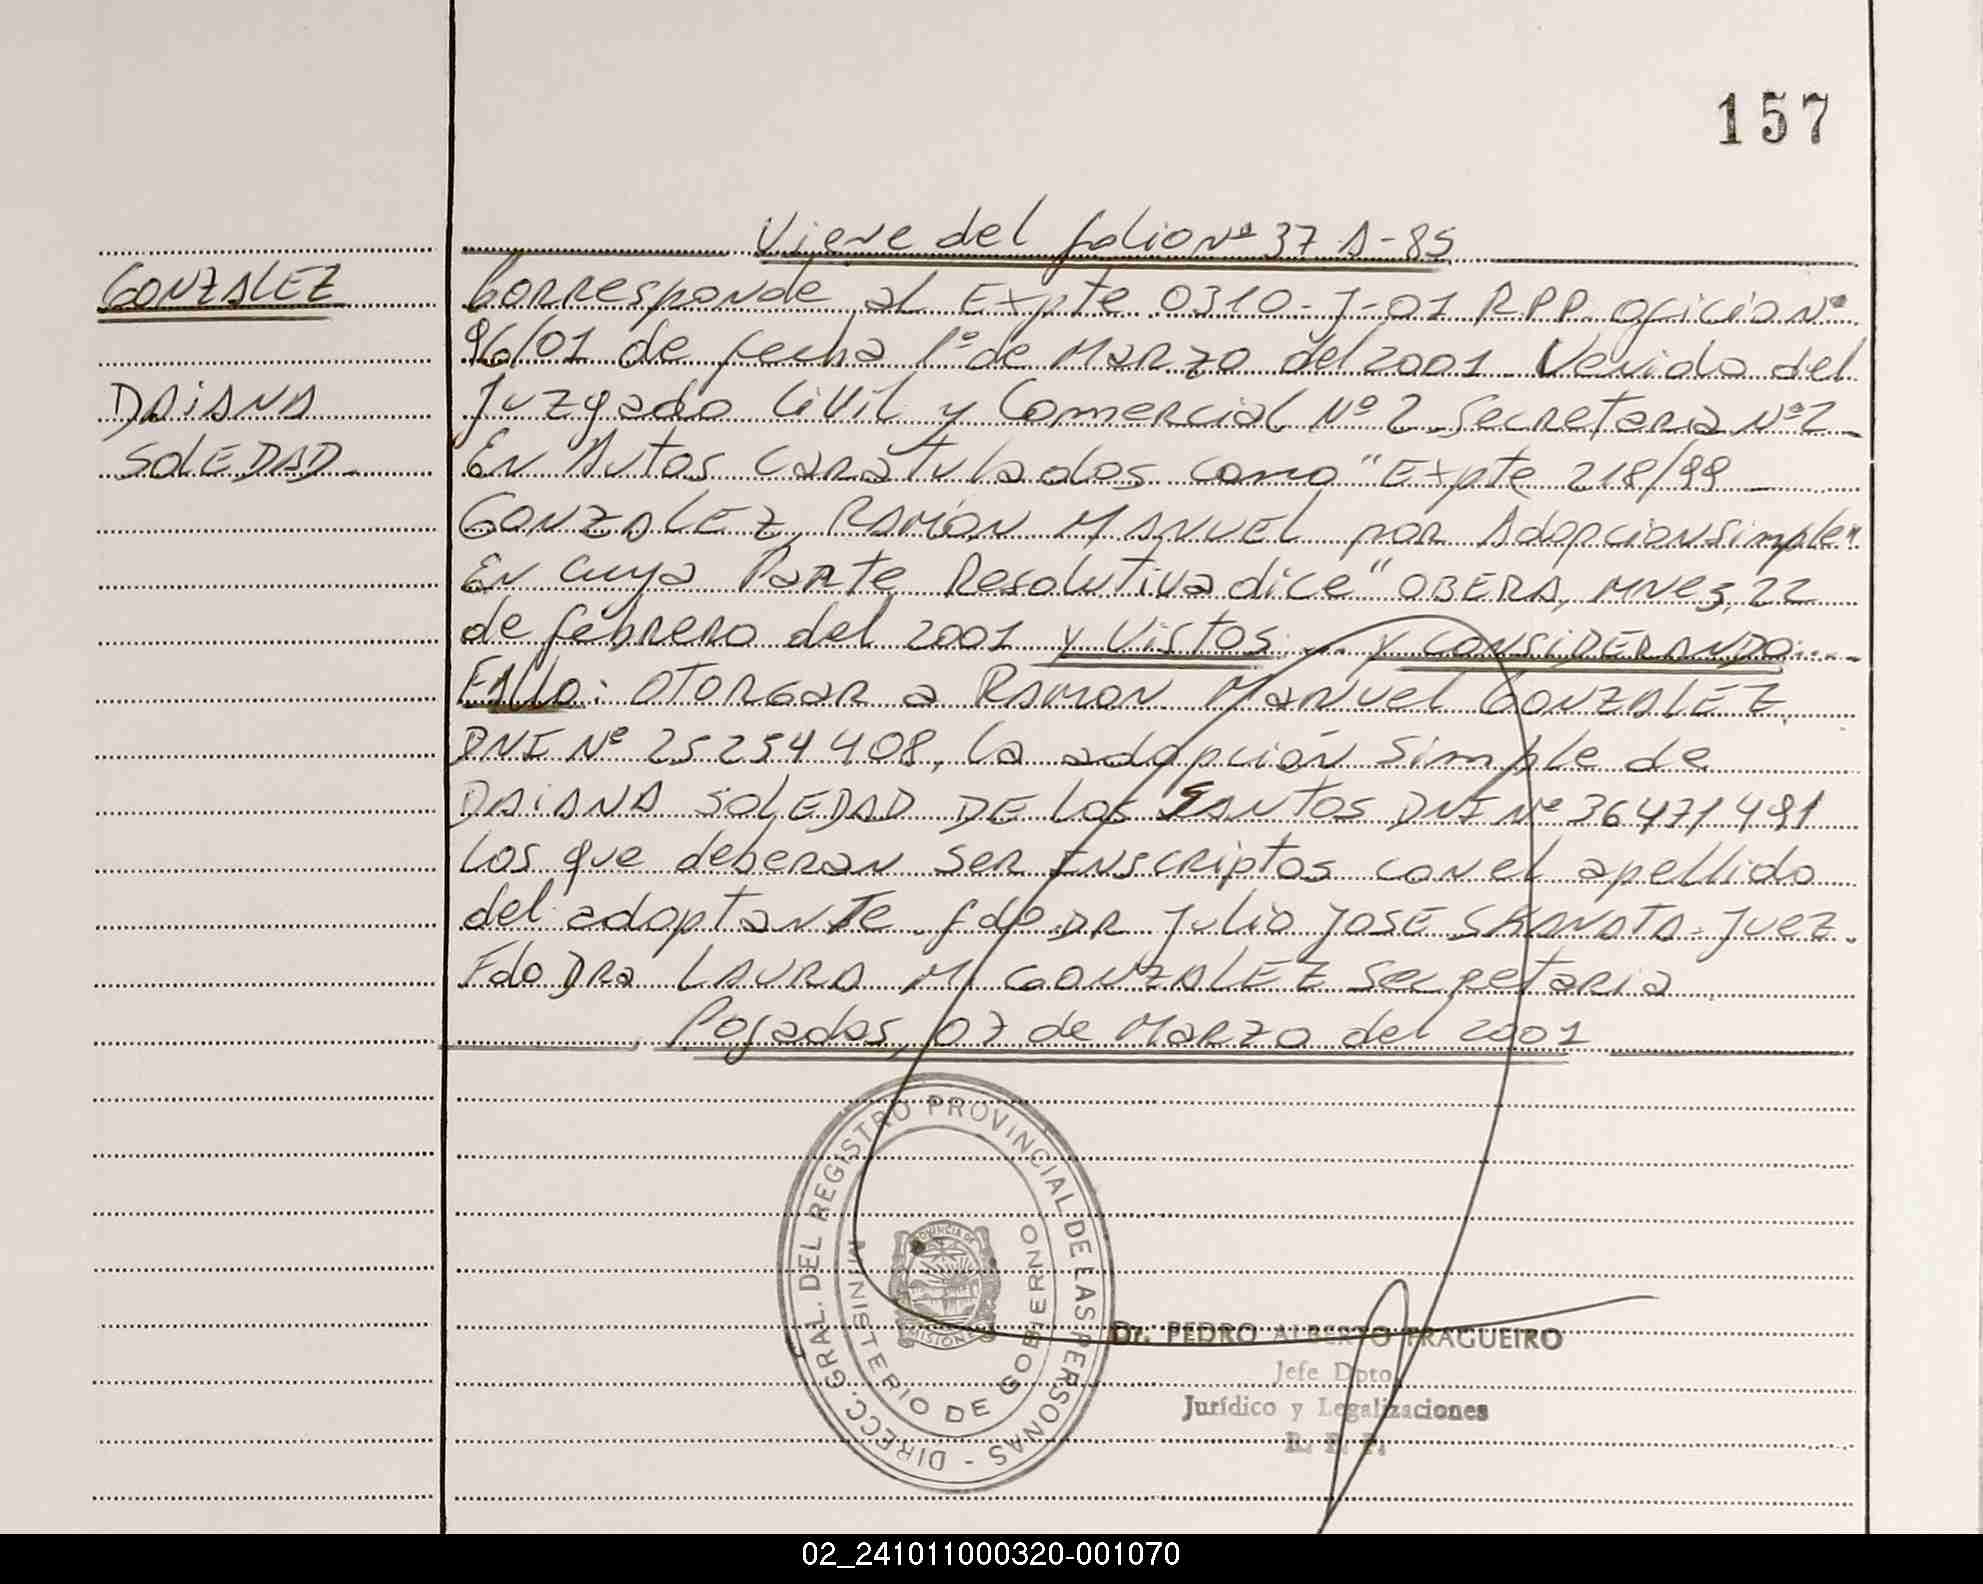 157
Viene del folio Nº 37-A-85
GONZALEZ
Corresponde al Expte 0310-J-01 R.P.P. oficio Nº
96/01 de fecha 1º de Marzo del 2001. Venido del
DAIANA
Juzgado Civil y Comercial Nº 2 Secretaria Nº 2
SOLEDAD
En Autos caratulados como "Expte 218/99
GONZALEZ, RAMÓN MANUEL por Adopcion simple"
En cuya Parte Resolutiva dice "OBERA, MNES, 22
de febrero del 2001 y Vistos... y CONSIDERANDO....
FALLO: OTORGAR a RAMON MANUEL GONZALEZ
DNI Nº 25254408, la adopción simple de
DAIANA SOLEDAD DE LOS SANTOS DNI Nº 36471491
Los que deberan ser INscriptos con el apellido
del adoptante fdo. DR Julio JOSE SKANATA. Juez.
Fdo DRa LAURA M. GONZALEZ Secretaria
Posadas, 07 de Marzo del 2001
DIRECC. GRAL. DEL REGISTRO PROVINCIAL DE LAS PERSONAS -
MINISTERIO DE GOBIERNO
PROVINCIA DE
MISIONES
Dr. PEDRO ALBERTO FRAGUEIRO
Jefe Dpto.
Jurídico y Legalizaciones
R. P. P.
02_241011000320-001070